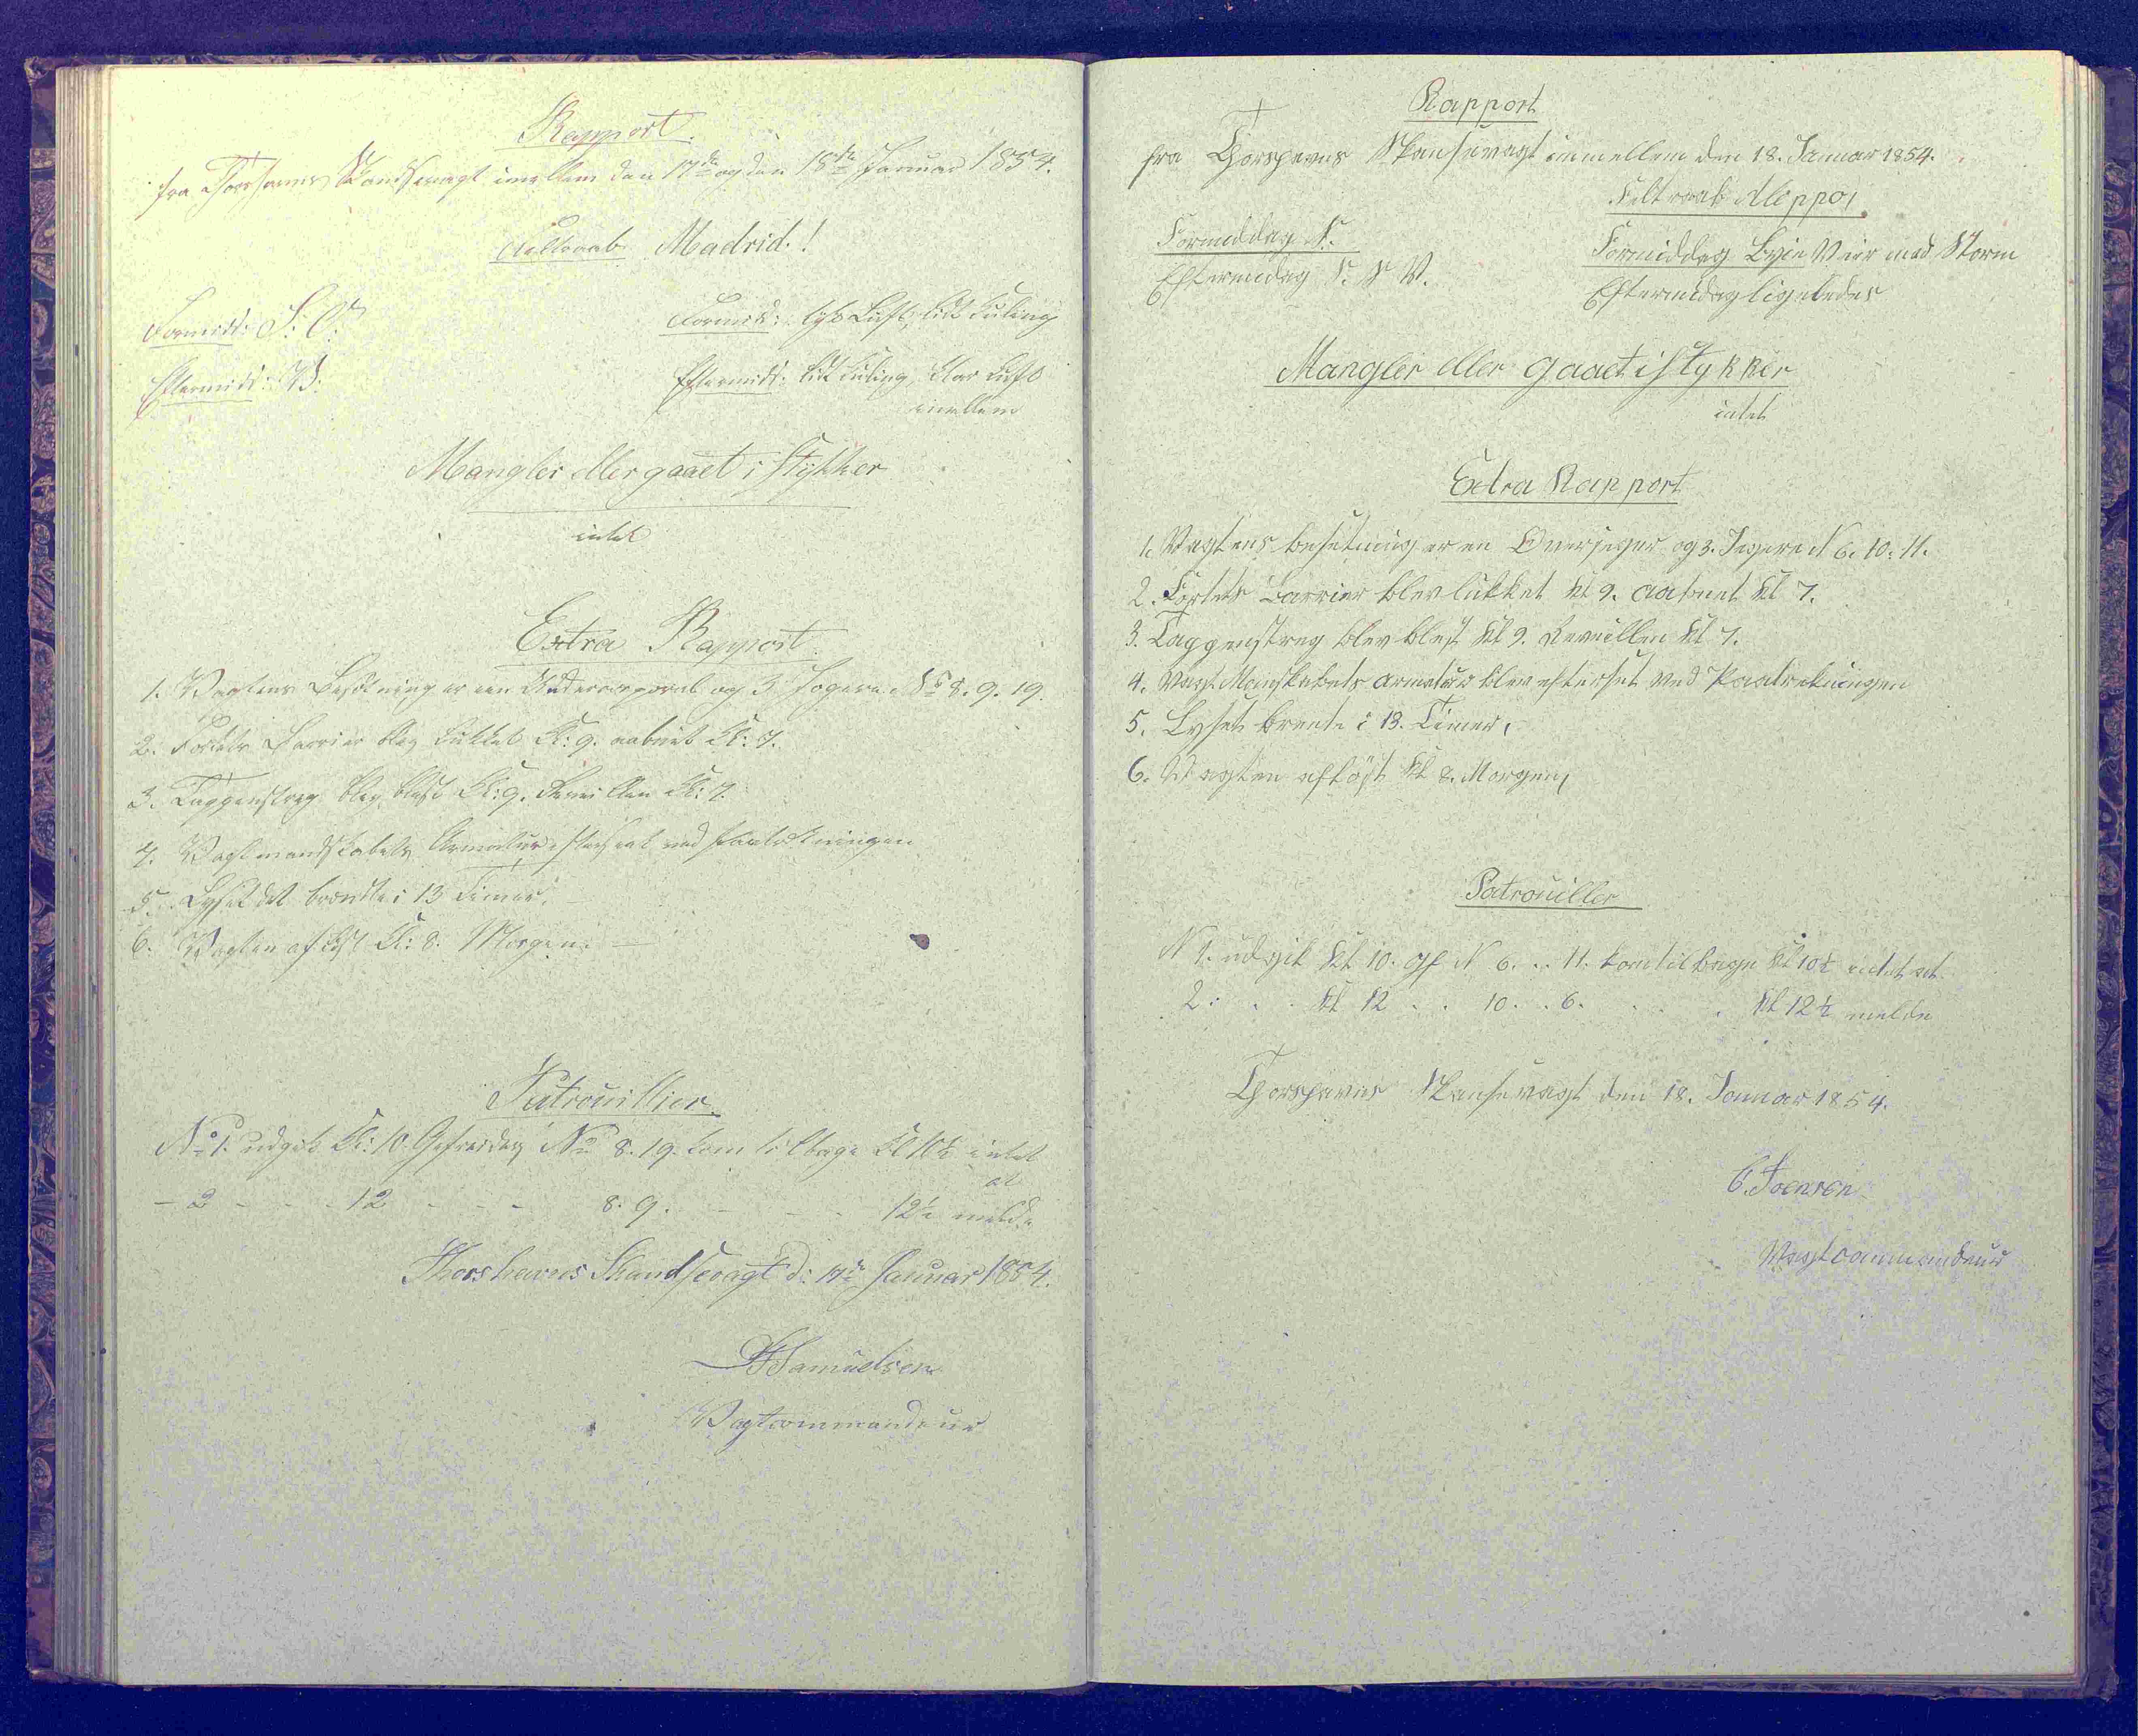 Rapport.
fra Thorshavns Skandsevagt imellem den 17de og den 18de Januar 1854.
Feltraab Madrid.!
Formidd: S: O:
Formid: tyk Luft, lidt Kuling
Eftermidd: V:
Eftermidd: lidt Kuling, klar Luft
imellem
Mangler eller gaaet i Stykker
intet
Extra Rapport.
1. Vagtens Besætning er en Undercorporal og 3 Jægere No 8. 9. 19.
2. Fortets Barrier blev lukket Kl: 9. aabnet Kl: 7.
3. Tappenstreg blev blæst Kl: 9. Reveillen Kl: 7.
4. Vagtmandskabets Armatur efterseet ved Paatrækningen
5. Lyset det brændte i 13 Timer.
6. Vagten afløst Kl: 8. Morgen.
Patrouillier.
No 1. udgik Kl: 10. Gefreider No 8. 19. kom tilbage Kl 10½ intet
at
- 2 - - - 12 - - - 8. 9. - - - 12½ melde
Thorshavns Skandsevagt d: 17de Januar 1854.
Samuelsen
Vagtcommandeur
Rapport
fra Thorshavns Skansevagt immellem den 18. Januar 1854.
Feltraab Aleppo,
Formiddag S.
Formiddag Byie Veir med Storm
Eftermidag S. S V.
Eftermidag ligeledes
Mangler eller gaaet i stykker
intet
Extra Rapport
1. Vagtens besetning er en Overjeger og 3. Jegere N 6. 10. 11.
2. Fortets Barrier blev lukket Kl 9. aabnet Kl 7.
3. Tappenstreg blev blest Kl 9. Reveillen Kl 7.
4. Vagt Manskabets armatur blev efterset ved Paatrekningen
5. Lyset brente i 13. Timer,
6. Vagten afløst Kl 8. Morgen,
Patrouiller
N 1. udgik Kl 10. gf N 6. .. 11. kom tilbage Kl 10½ intet at
2. . . Kl 12 . . 10. . 6. . . . Kl 12½ melde
Thorshavns Skansevagt den 18. Januar 1854.
Joensen
Vagtcommandeur